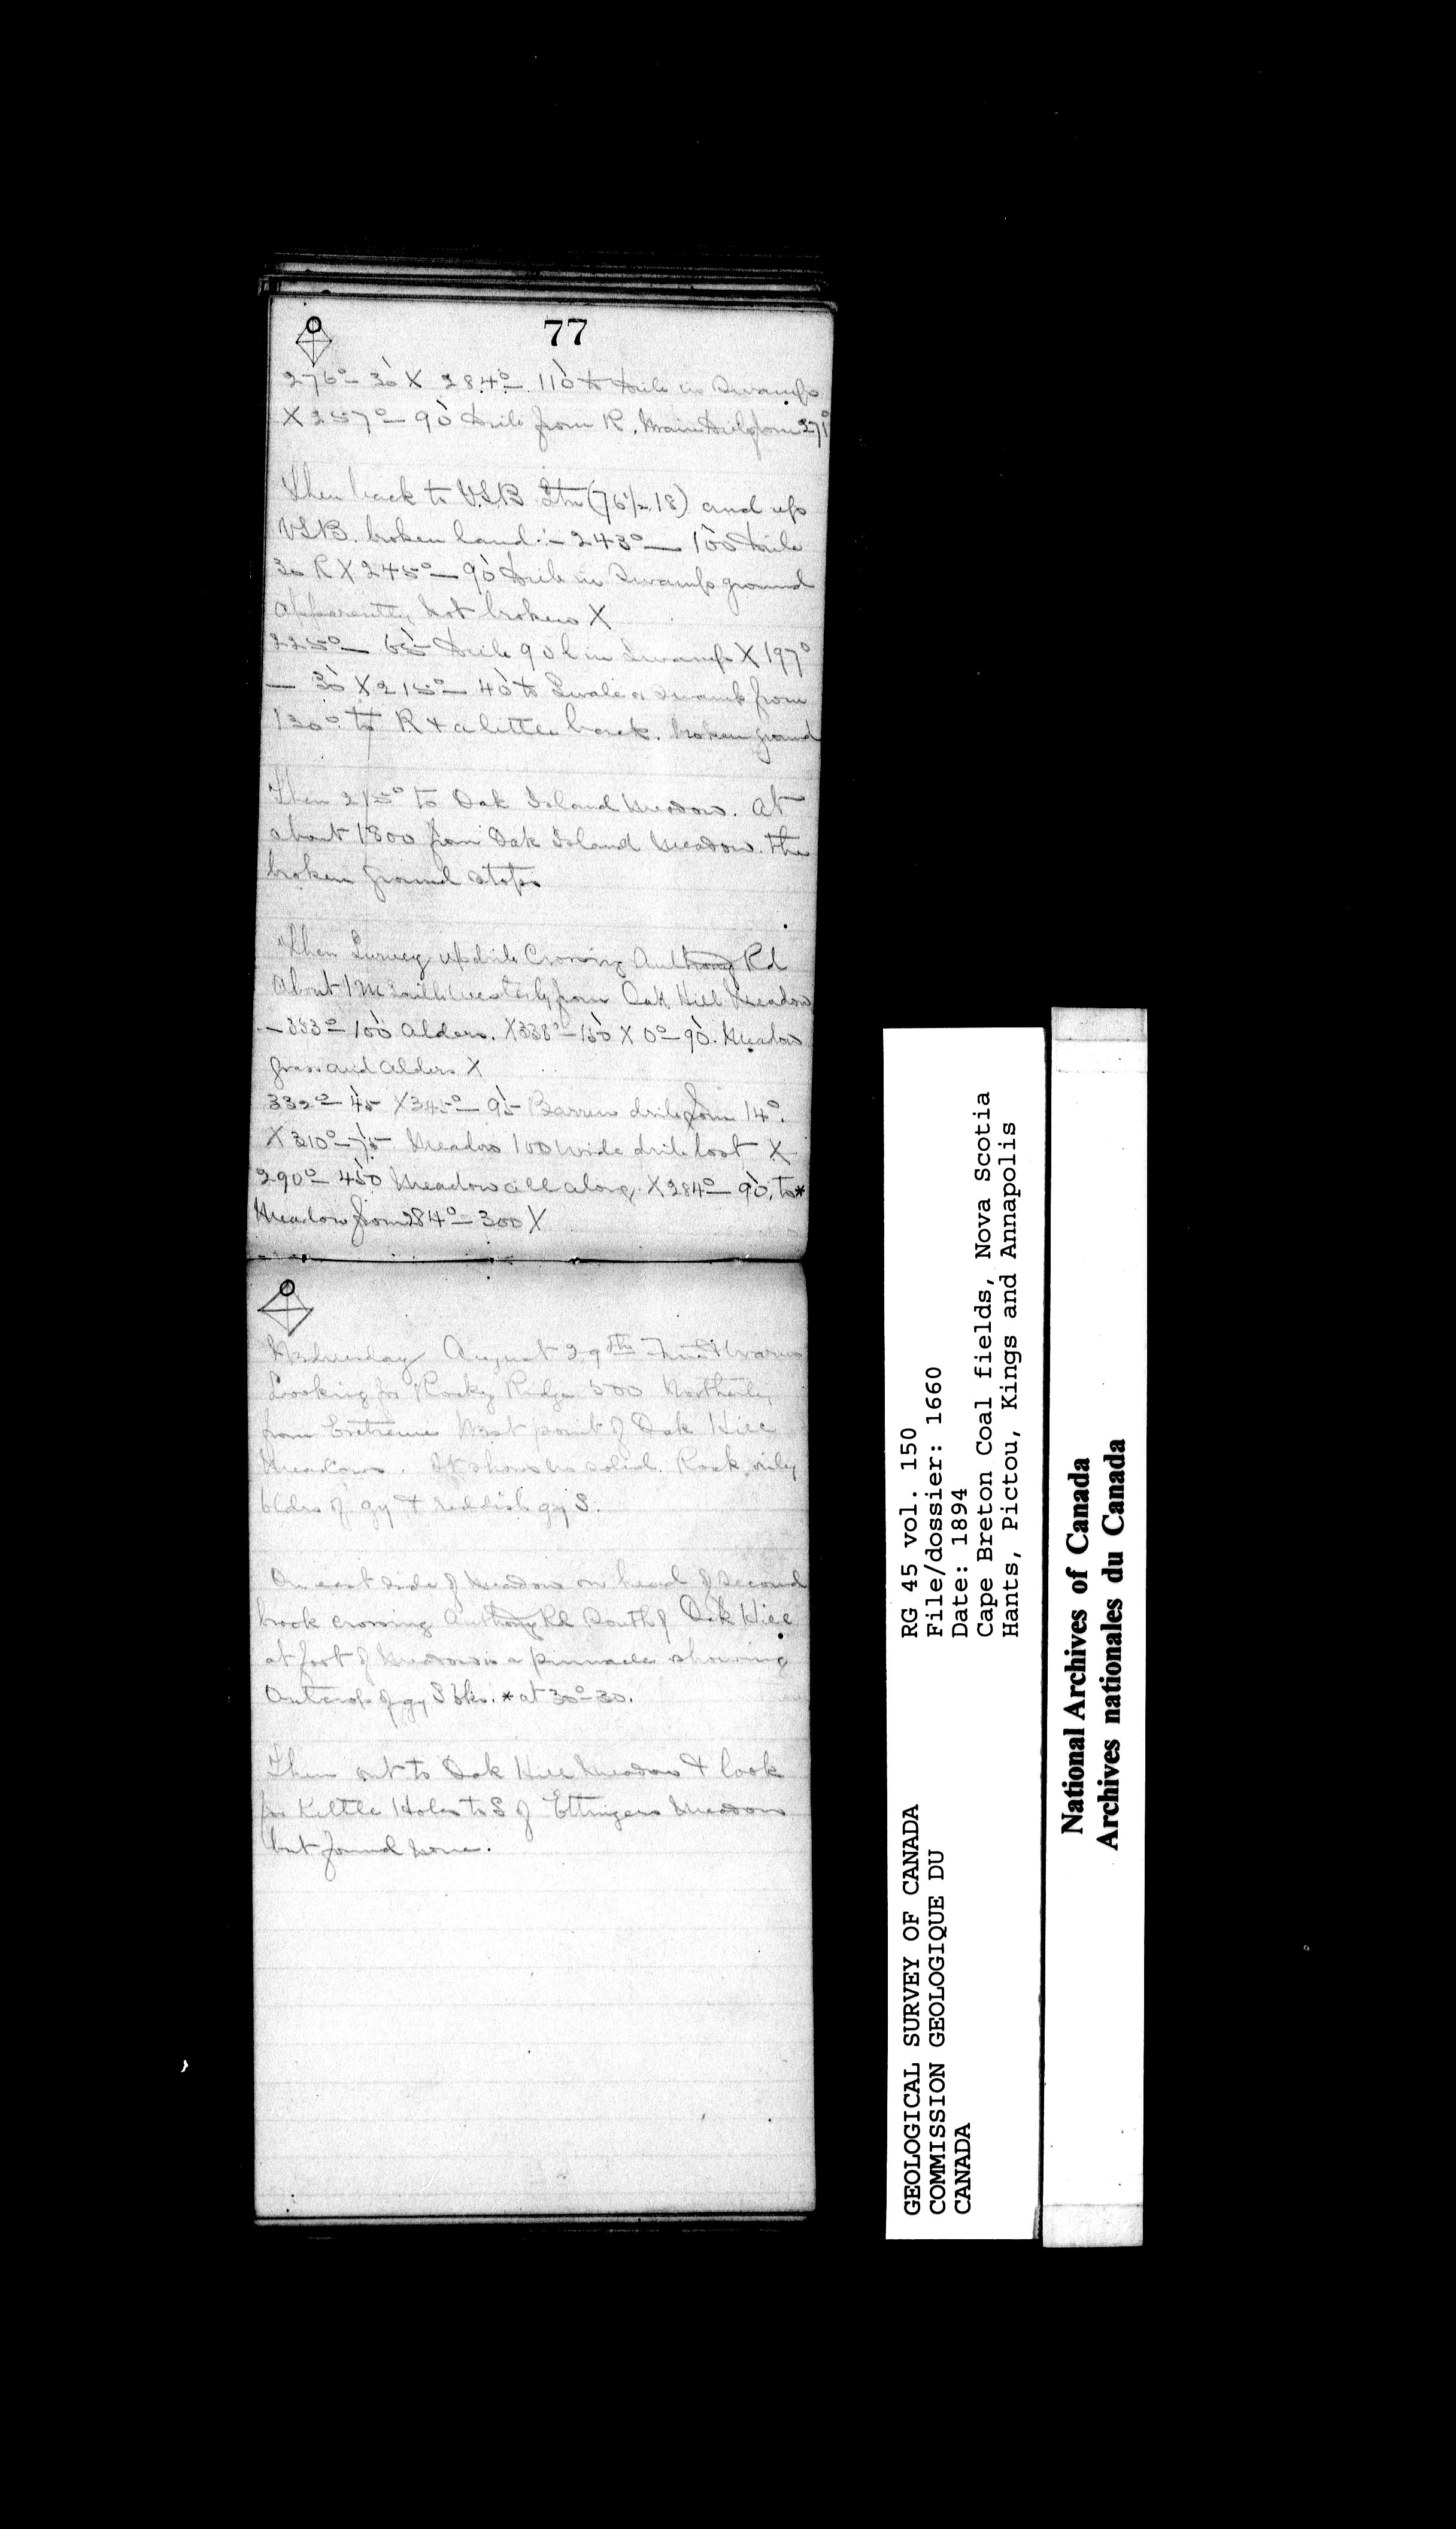 77
276° – 30 X 284° – 110 to drile in Swamp
X 257° – 90 drile from R. Main drile from 271°
Then back to V.S.B. (76/-18) and up
VSB. broken land :- 243° — 100 drile
30 R X 245° – 90 drile in Swamp ground
apparently not broken X
225° — 65 drile 90 L in Swamp X 197°
— 30 X 215° – 40 to Swale or Swamp from
130° to R + a little back. broken ground
Then 215° to Oak Island Meadow. at
about 1800 from Oak Island Meadow the
broken ground stops
Then Survey up drile Crossing Anthony Rd
about 1/m westerly from Oak Hill Meadow
– 333° – 100 Alders. X 338° – 150 X 0° – 90. Meadow
grass and alders X
332° – 45 X 345° – 95 Barren drile from 14°.
X 310° – 75 Meadow 100 wide drile lost X
290° – 450 Meadow all along. X 284° – 90, to *
Meadow from 284° – 300 X
Wednesday August 29th Fine & Warm
Looking for Rocky Ridge 500 Northerly
from Extreme West point of Oak Hill
Meadow. It shows no solid. Rock only
bldrs of gy & reddish gy S.
On east side of Meadow on head of second
brook crossing Anthony Rd South of Oak Hill
at foot of Meadow is a pinnacle showing
Outcrop of gy S blks. * at 30° – 30.
Then out to Oak Hill Meadow & look
for Kettle Holes to S of Ettingers Meadow
but found none.
GEOLOGICAL SURVEY OF CANADA
COMMISSION GEOLOGIQUE DU
CANADA
RG 45 vol. 150
File/dossier: 1660
Date: 1894
Cape Breton Coal fields, Nova Scotia
Hants, Pictou, Kings and Annapolis
National Archives of Canada
Archives nationales du Canada